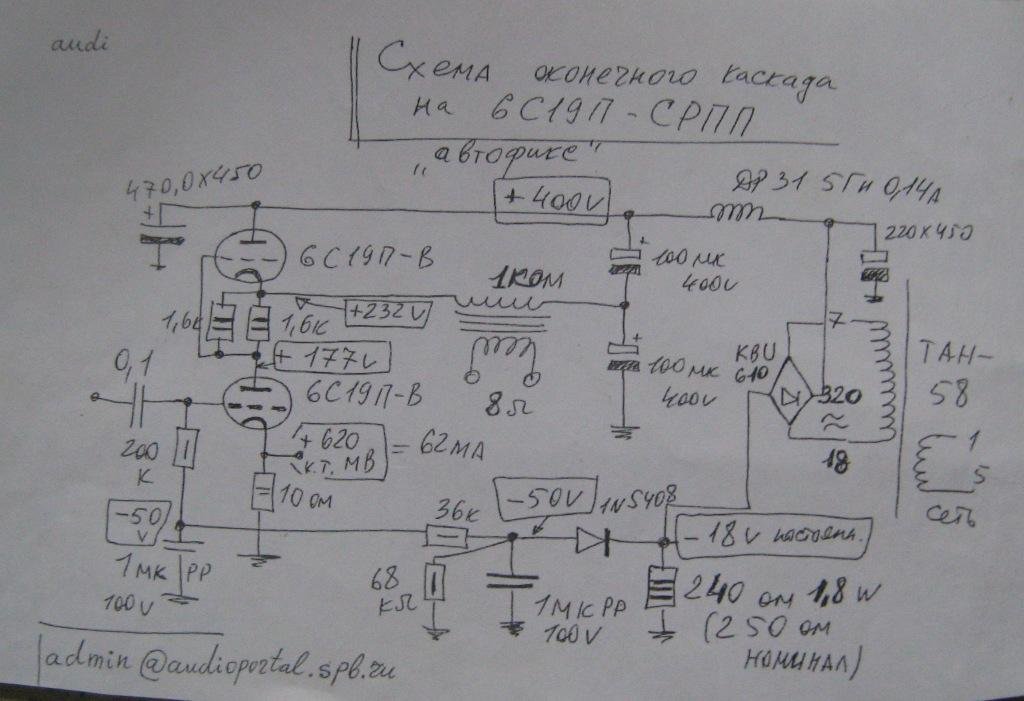 audi
Схема оконечного каскада
на 6С19П-СРПП
"автофикс"
470,0x450
+
+400V
ДР31 5Гн 0,14А
220x450
6С19П-В
+
100мк
400V
1КОМ
1,6к
1,6к
+232V
+177V
+
100мк
400V
KBU
610
7
320
≈
18
ТАН-
58
1
5
сеть
0,1
6С19П-В
8Ω
200
К
+620
К.Т. МВ
= 62МА
10ом
-50
V
1МК РР
100V
36к
-50V
1N5408
-18V постоян.
68
кΩ
1МК РР
100V
240 ом 1,8W
(250 ом
номинал)
admin@audioportal.spb.ru